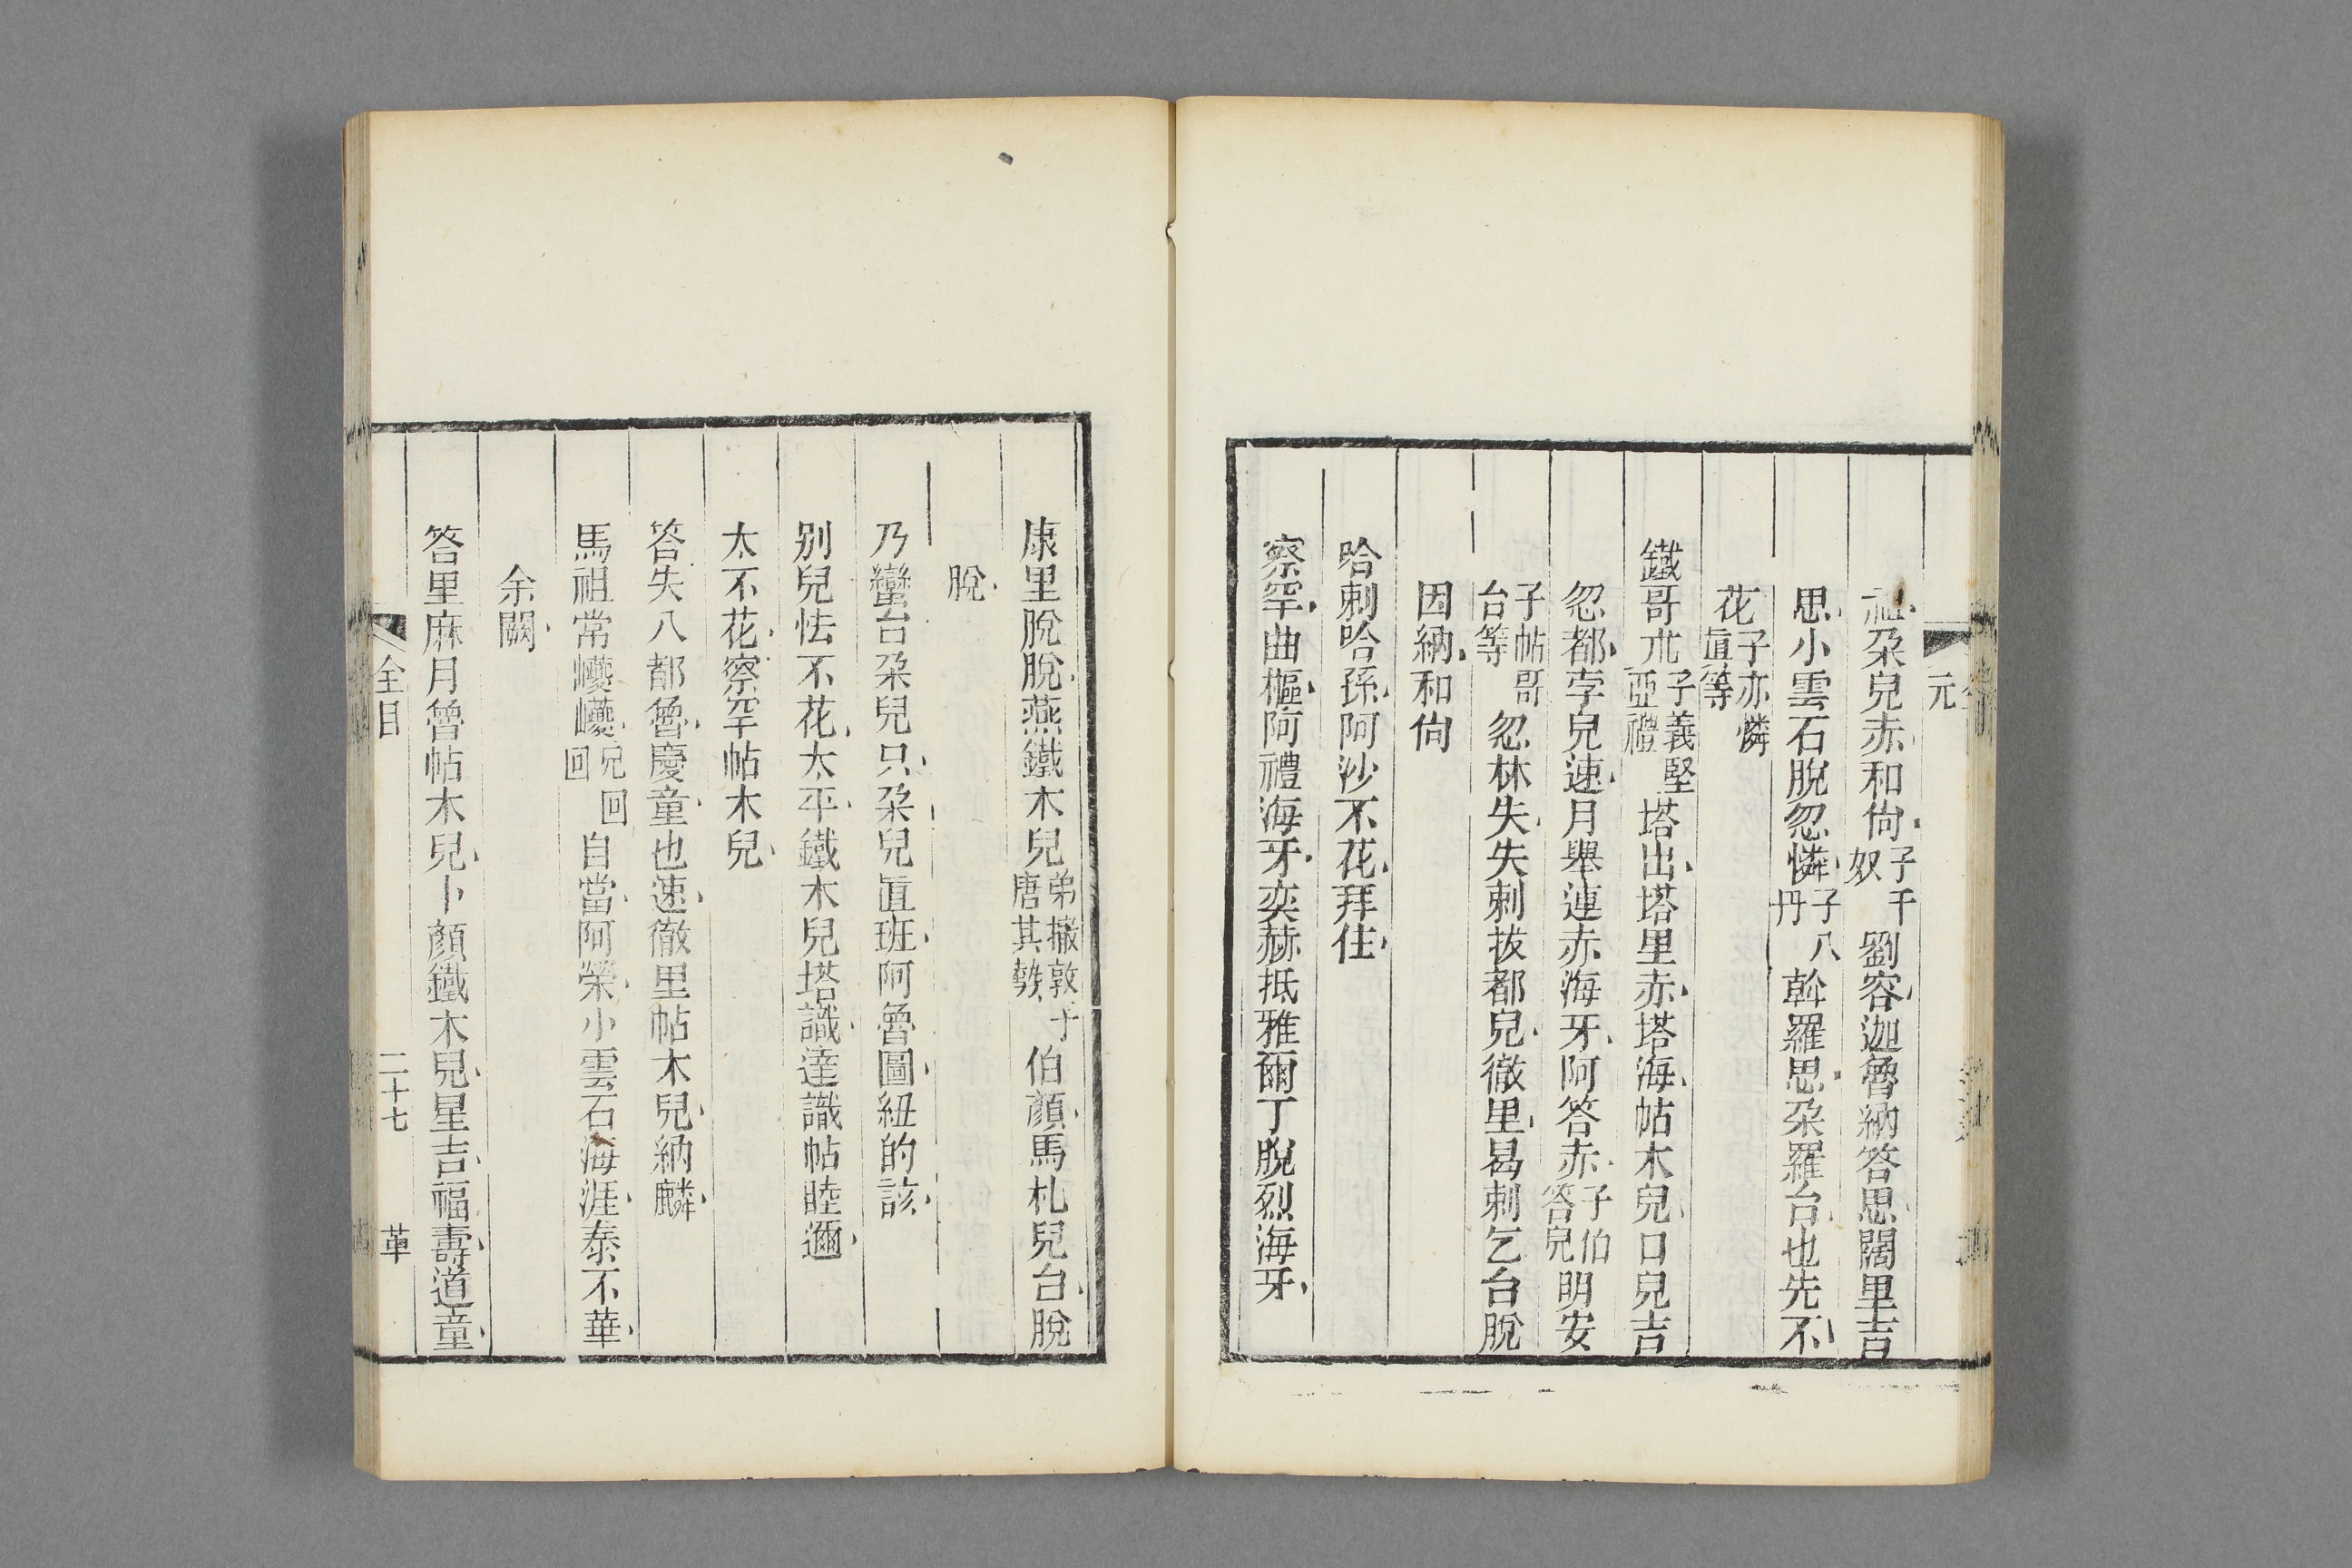 元
祖朶兒赤和尙子千奴劉容迦魯納答思闊里吉
思小雲石脫忽憐子八丹斡羅思朶羅台也先不
花子亦憐眞等
鐵哥朮子義堅亞禮塔出塔里赤塔海帖木兒口兒吉
忽都孛兒速月舉連赤海牙阿答赤子伯答兒明安
台子帖哥等忽林失失剌拔都兒徹里曷剌乞台脫
因納和尙
哈剌哈孫阿沙不花拜住
察罕曲樞阿禮海牙奕赫抵雅爾丁脫烈海牙
康里脫脫燕鐵木兒弟撒敦子唐其勢伯顏馬札兒台脫
脫
乃蠻台朶兒只朶兒眞班阿魯圖紐的該
别兒怯不花太平鐵木兒塔識達識帖睦邇
太不花察罕帖木兒
答失八都魯慶童也速徹里帖木兒納麟
馬祖常巙巙兄回回自當阿榮小雲石海涯泰不華
余闕
答里麻月魯帖木兒卜顏鐵木兒星吉福壽道童
全目 二十七 革